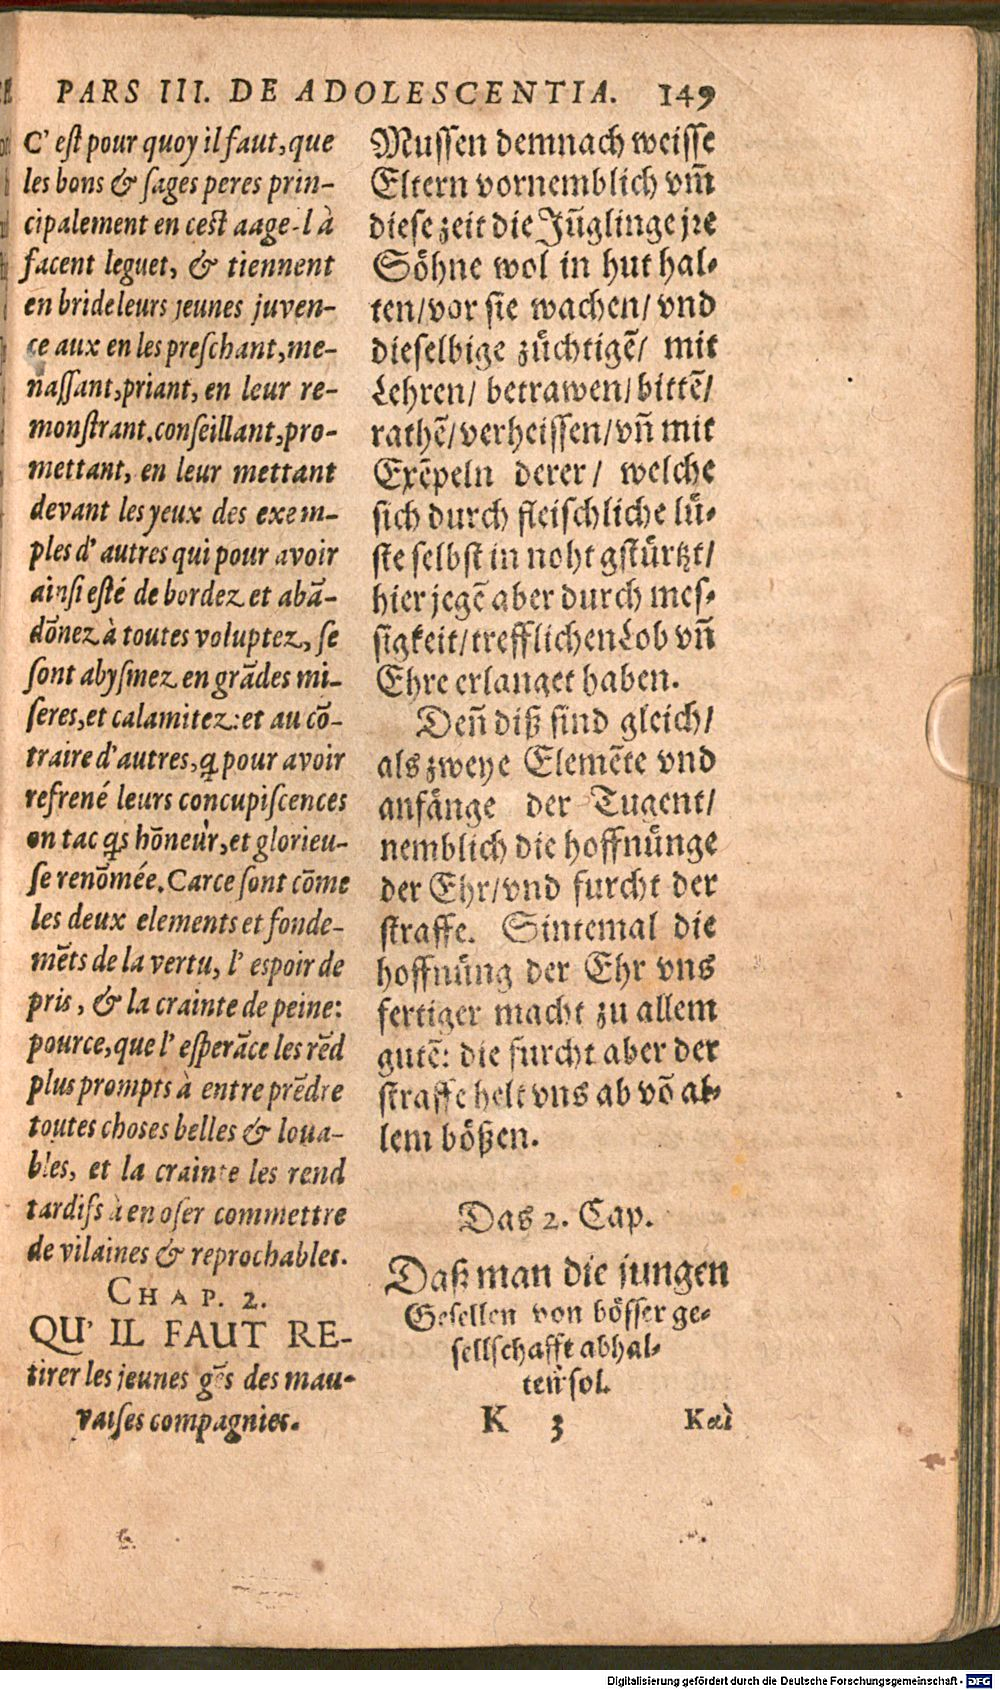 PARS III. DE ADOLESCENTIA. 149
C' eſt pour quoy il faut, que
les bons & ſages peres prin-
cipalement en ceſt aage-là
facent leguet, & tiennent
en bride leurs jeunes juven-
ce aux en les preſchant, me-
naſſant, priant, en leur re-
monſtrant, conſeillant, pro-
mettant, en leur mettant
devant les yeux des exem-
ples d' autres qui pour avoir
ainſi eſté de bordez et abā-
dōnez à toutes voluptez, ſe
ſont abyſmez en grādes mi-
ſeres, et calamitez: et au cō-
traire d' autres, q̄ pour avoir
refrené leurs concupiſcences
on tac q̄s hōneur, et glorieu-
ſe renōmée. Car ce ſont cōme
les deux elements et fonde-
mēts de la vertu, l' eſpoir de
pris, & la crainte de peine:
pource, que l' eſperāce les rēd
plus prompts à entre prēdre
toutes choses belles & loua-
bles, et la crainte les rend
tardifs à en oſer commettre
de vilaines & reprochables.
CHAP. 2.
QU' IL FAUT RE-
tirer les jeunes gēs des mau-
vaiſes compagnies.
Muſſen demnach weiſſe
Eltern vornemblich vm̄
dieſe zeit die Jūglinge jre
Söhne wol in hut hal-
ten/ vor ſie wachen/ vnd
dieſelbige züchtigē/ mit
Lehren/ betrawen/ bittē/
rathē/ verheiſſen/ vn̄ mit
Exēpeln derer/ welche
ſich durch fleiſchliche lü-
ſte ſelbſt in noht gſtürtzt/
hier jegē aber durch meſ-
ſigkeit/ trefflichen Lob vn̄
Ehre erlanget haben.
Den̄ diß ſind gleich/
als zweye Elemēte vnd
anfänge der Tugent/
nemblich die hoffnünge
der Ehr/ vnd furcht der
ſtraffe. Sintemal die
hoffnüng der Ehr vns
fertiger macht zu allem
gutē: die furcht aber der
ſtraffe helt vns ab vō al-
lem bößen.
Das 2. Cap.
Daß man die jungen
Geſellen von böſſer ge-
ſellſchafft abhal-
ten ſol.
K 3 Καὶ
Digitalisierung gefördert durch die Deutsche Forschungsgemeinschaft - DFG